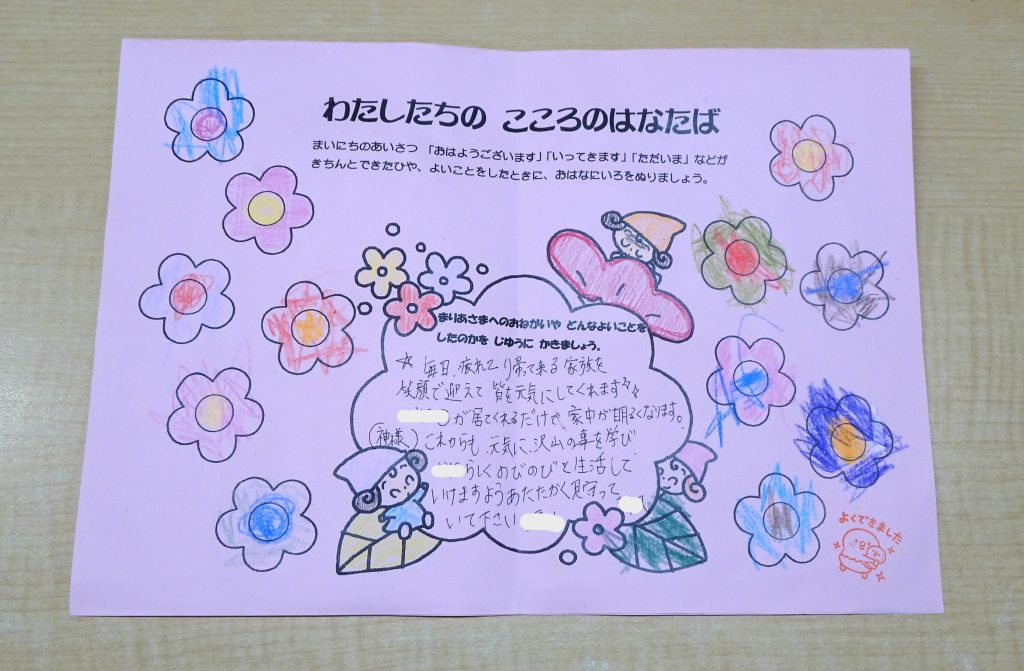 わたしたちの こころのはなたば
まいにちのあいさつ 「おはようございます」「いってきます」「ただいま」などが
きちんとできたひや、よいことをしたときに、おはなにいろをぬりましょう。
まりあさまへのおねがいや どんなよいことを
したのかを じゆうに かきましょう。
☆ 毎日、疲れて帰って来る家族を
笑顔で迎えて 皆を元気にしてくれます
が居てくれるだけで、家中が明るくなります。
(神様) これからも、元気に、沢山の事を学び、
らしくのびのびと生活して
いけますようあたたかく見守って
いて下さい
よくできました